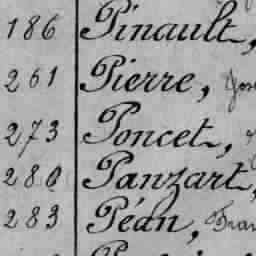 186 Pinault,
261 Pierre,
273 Poncet,
280 Panzart,
283 Péan,